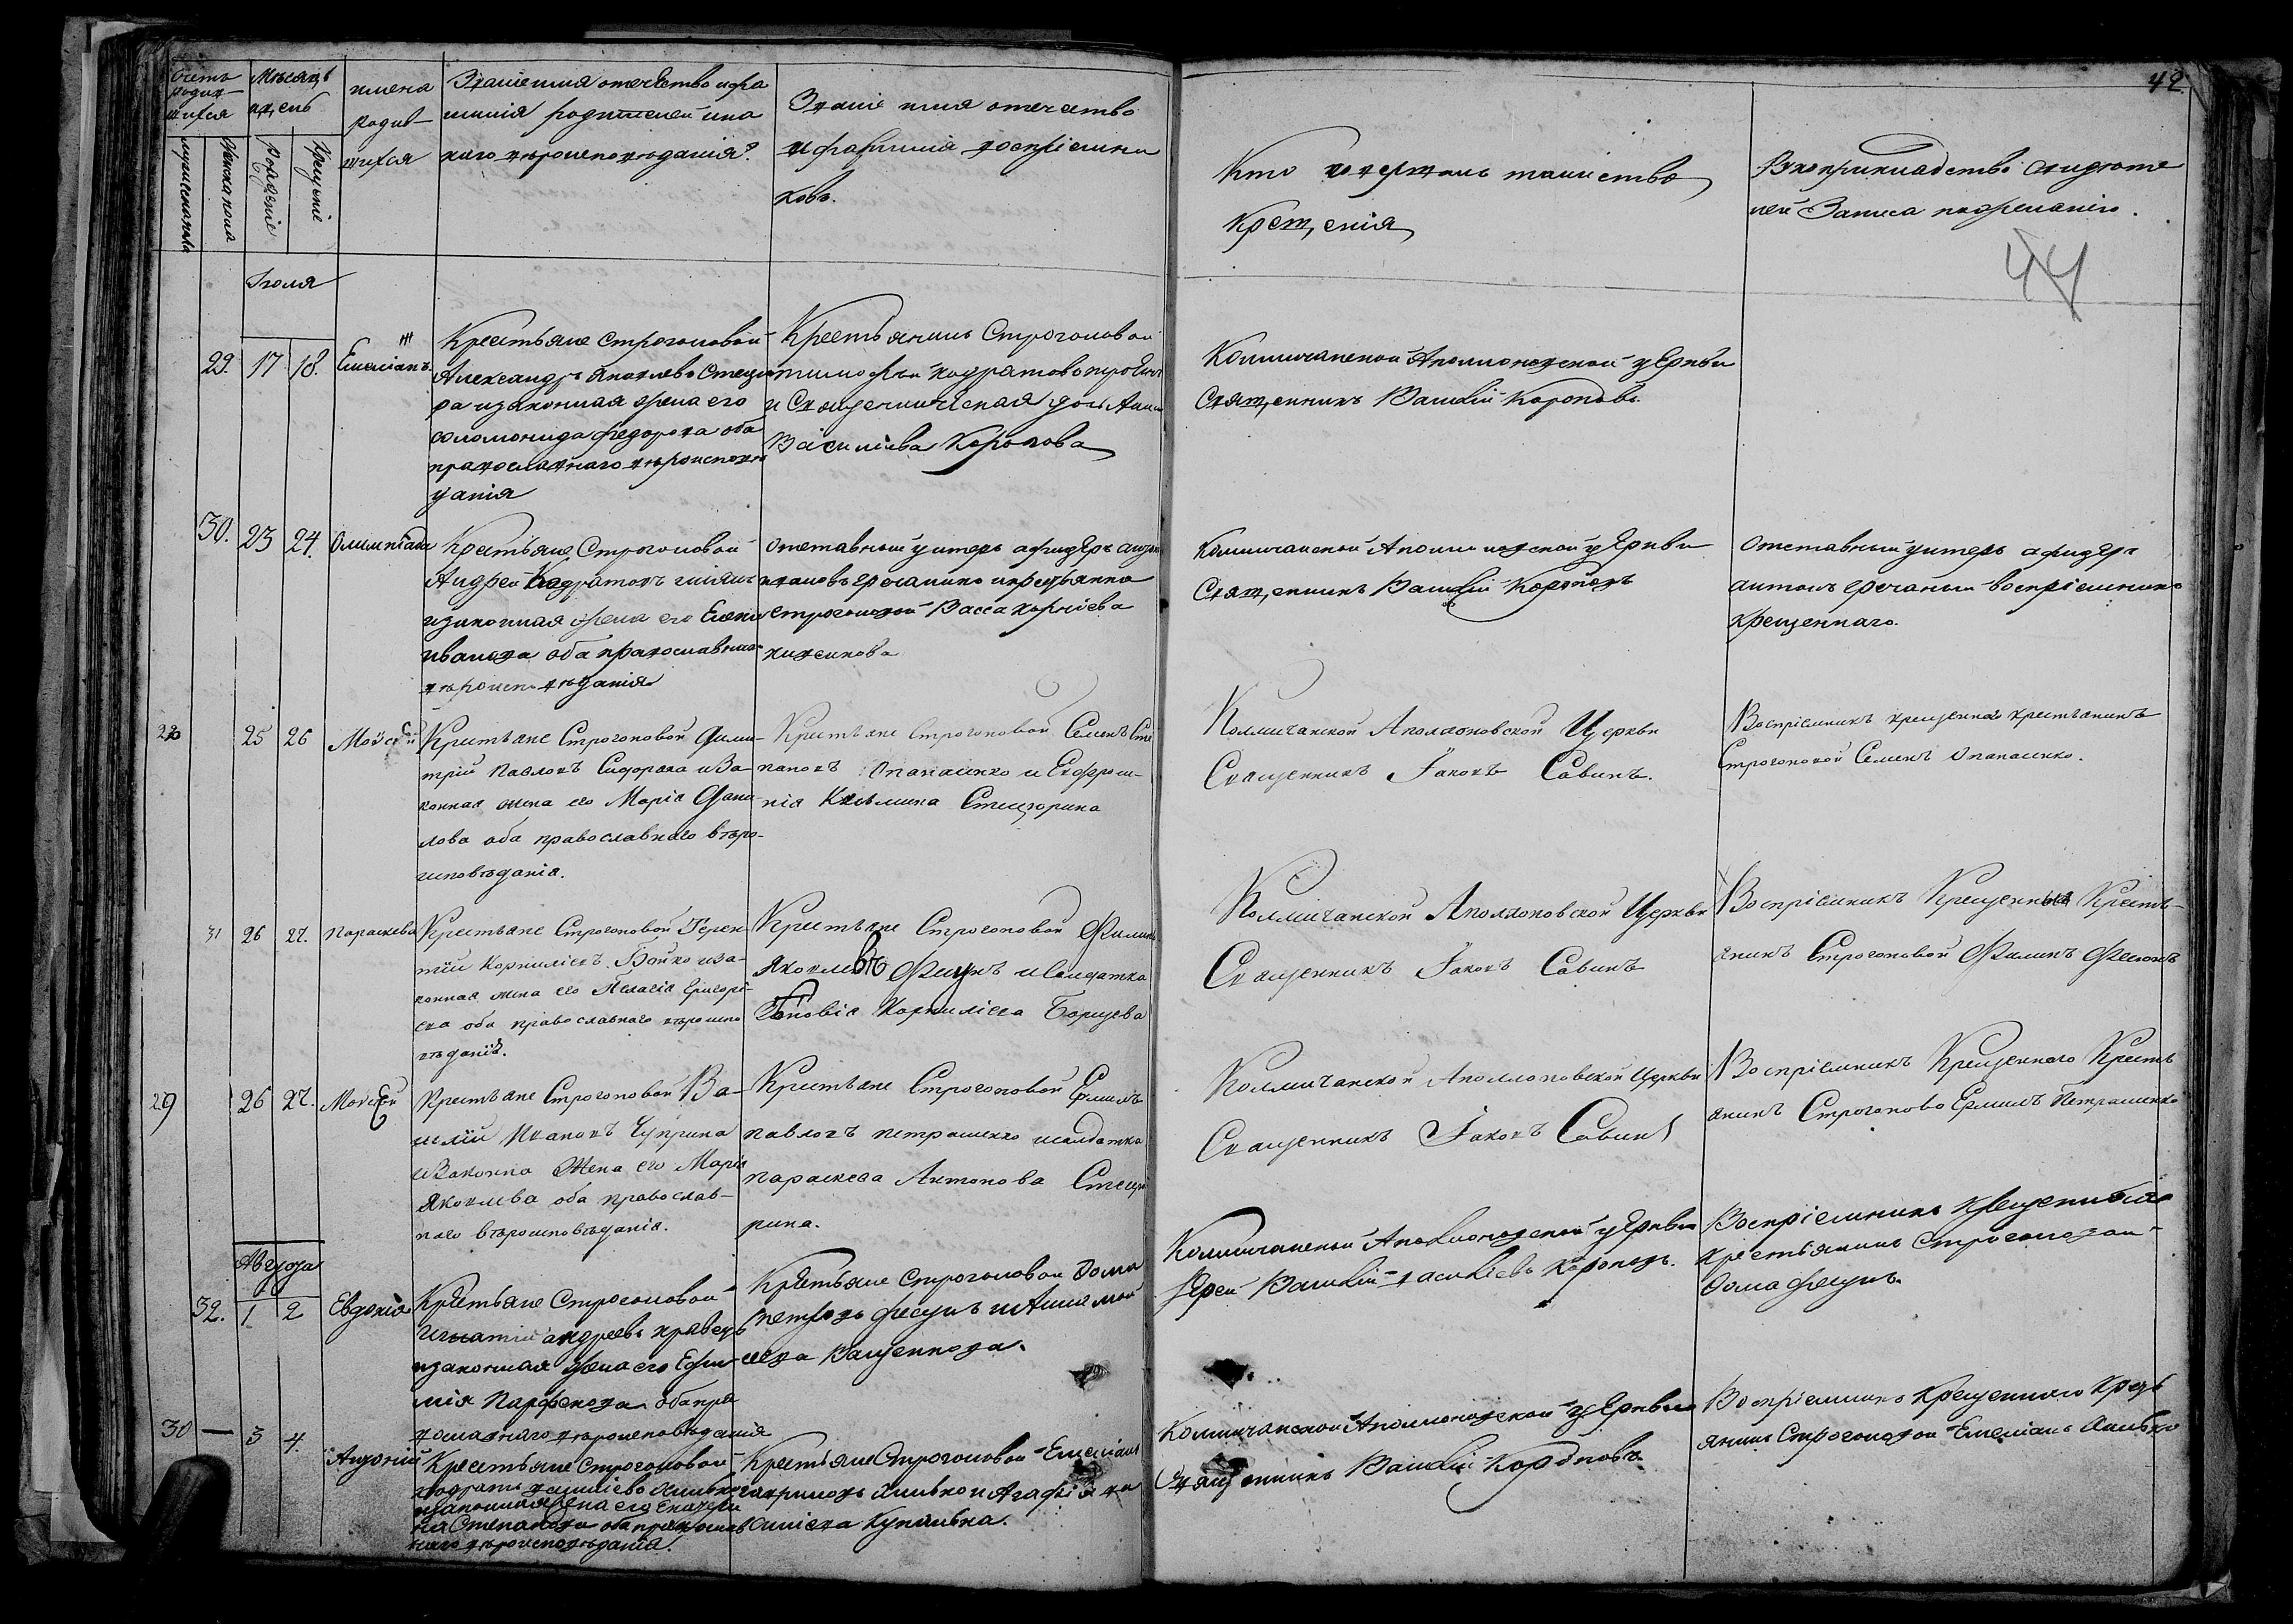 42
Счетъ родив-
шихся
мужеска пола
Женска пола
Мѣсяцъ
и день
Рожденіе
Крещеніе
имена
родив-
шихся
Званіе имя отечество и фа
милія родителей и ка
каго вѣроисповѣданія?
Званіе имя отечество
и фамилія воспріемни
ковъ.
Кто совершалъ таинство
Крещенія
Рукоприкладство свидѣте
лей Записа по желанію.
44
Іюля
29. 17 18. Емеліанъ
Крестьяне Строгоновой
Александръ Яковлевъ Стецю
ра и законная жена его
соломонида федорова оба
православнаго вѣроисповѣ
данія
Крестьянинъ Строгоновой
и Священническая дочь Анна
Василіева Коропова
Колмичанской Аполлоновской церкви
Священникъ Василій Короповъ
30. 23 24. Олимпіада
Крестьяне Строгоновой
Андрей
и законная жена его Елена
иванова оба православнаго
вѣроисповѣданія
отставный унтеръ афицеръ антонъ
и крестьянка
строгоновой Васса Корніева
Колмичанской Аполлоновской церкви
Священникъ Василій Короповъ
Отставный унтеръ афицеръ
антонъ воспріемникъ
крещеннаго.
25 26 Моисей
Крестьяне Строгоновой Дими-
трій Павловъ Сидорака и За-
конная жена его Марія Дани-
лова оба православнаго вѣро-
исповѣданія.
Крестьяне Строгоновой Семенъ Сте
пановъ Опанасенко и Евфроси-
нія Козьмина Стецюрина
Колмичанской Аполлоновской Церкви
Священникъ Іаковъ Савинъ.
Воспріемникъ крещеннаго крестьянинъ
Строгоновой Семенъ Опанасенко.
31 26 27. Параскева
Крестьяне Строгоновой Терен-
тій Корниліевъ Бойко и За-
конная жена его Пелагія Григорі-
ева оба православнаго вѣроиспо
вѣданія.
Крестьяне Строгоновой Филипъ
Яковлевъ Фесунъ и Солдатка
Зіновія Корниліева Борщева
Колмичанской Аполлоновской Церкви
Священникъ Іаковъ Савинъ
Воспріемникъ Крещенныя Кресть-
янинъ Строгоновой Филипъ Фесюнъ
29 26 27. Моисей
Крестьяне Строгоновой Ва-
силій Ивановъ Чуприна
и Законна Жена его Марія
Яковлева оба православ-
наго вѣроисповѣданія.
Крестьяне Строгоновой Ермилъ
Павловъ Петрашенко и солдатка
Параскева Антонова Стецю
рина.
Колмичанской Аполлоновской Церкви
Священникъ Іаковъ Савинъ
Воспріемникъ Крещеннаго Кресть
янинъ Строгоново Ермилъ Петрашенко
Августа
32. 1 2 Евдокія
Крестьяне Строгоновой
Игнатій андреевъ кравецъ
и законная жена его Ефи
мія Парфенова оба пра
вославнаго вѣроисповѣданія
Крестьяне Строгоновой Фома
петровъ фесунъ и Анна мои
сеева Ващенкова.
Колмичанской Аполлоновской церкви
Іерей Василій василіевъ Короповъ.
Воспріемникъ Крещенныя
крестьянинъ Строгоновой
Фома фесунъ.
30 — 3 4. Андроній
Крестьяне Строгоновой
и законная жена его Екатери
на Степанова оба православ
наго вѣроисповѣданія.
Крестьяне Строгоновой Емеліанъ
гавриловъ и Агафія ва
силіева
Колмичанской Аполлоновской церкви
Священникъ Василій Короповъ
Воспріемникъ Крещеннаго Кресть
янинъ Строгоновой Емеліанъ